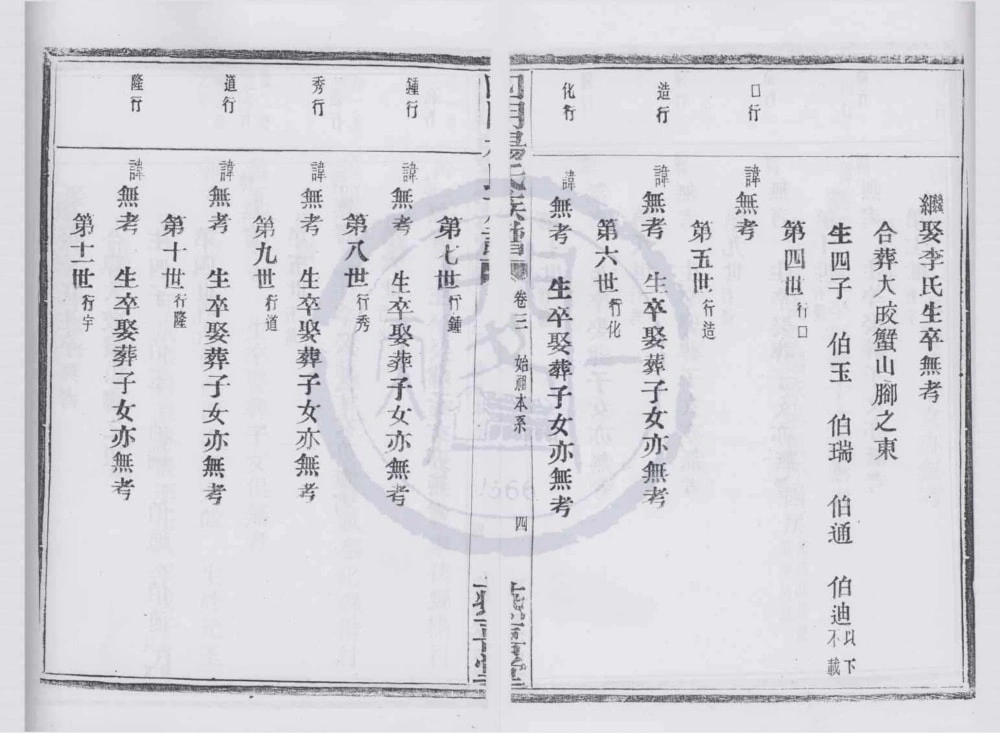 繼娶李氏生卒無考
合葬大㕁蟹山腳之東
生四子 伯玉 伯瑞 伯通 伯迪 以下不載
第四世 行口
口行
諱無考
第五世 行造
造行
諱無考 生卒娶葬子女亦無考
第六世 行化
化行
諱無考 生卒娶葬子女亦無考
卷三 始祖本系 四
第七世 行鍾
鍾行
諱無考 生卒娶葬子女亦無考
第八世 行秀
秀行
諱無考 生卒娶葬子女亦無考
第九世 行道
道行
諱無考 生卒娶葬子女亦無考
第十世 行隆
隆行
諱無考 生卒娶葬子女亦無考
第十一世 行宇
1566